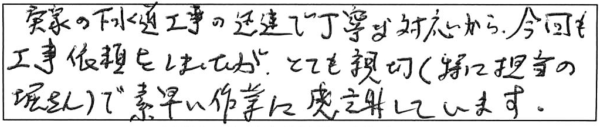 実家の下水道工事の迅速で丁寧な対応から、今回も
工事依頼をしましたが、とても親切(特に担当の
堀さん)で素早い作業に感謝しています。